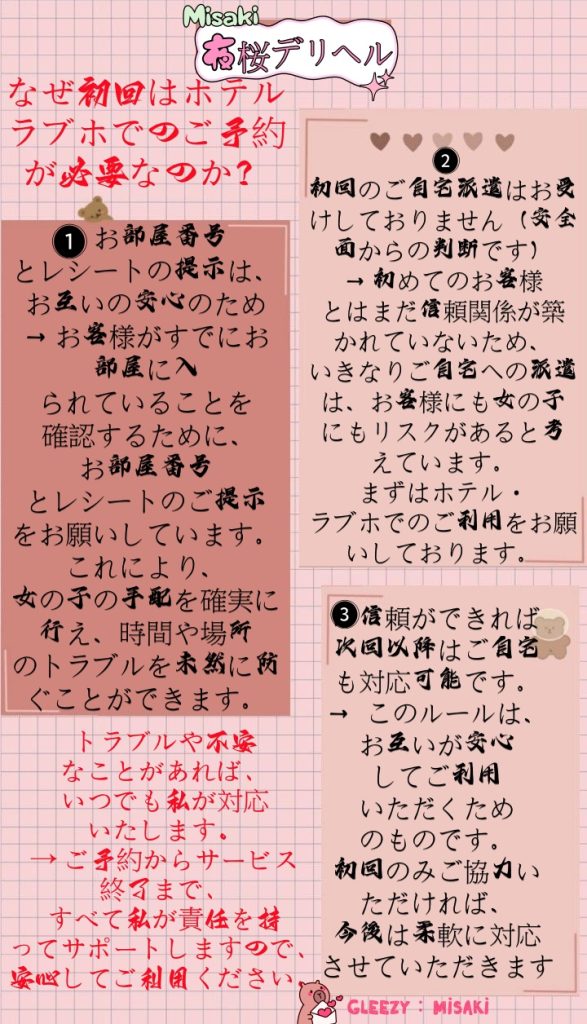 Misaki
布桜デリヘル
なぜ初回はホテル
ラブホでのご予約
が必要なのか?
1 お部屋番号
とレシートの提示は、
お互いの安心のため
→ お客様がすでにお
部屋に入
られていることを
確認するために、
お部屋番号
とレシートのご提示
をお願いしています。
これにより、
女の子の手配を確実に
行え、時間や場所
のトラブルを未然に防
ぐことができます。
トラブルや不安
なことがあれば、
いつでも私が対応
いたします。
→ ご予約からサービス
終了まで、
すべて私が責任を持
ってサポートしますので、
安心してご利用ください
2
初回のご自宅派遣はお受
けしておりません(安全
面からの判断です)
→ 初めてのお客様
とはまだ信頼関係が築
かれていないため、
いきなりご自宅への派遣
は、お客様にも女の子
にもリスクがあると考
えています。
まずはホテル・
ラブホでのご利用をお願
いしております。
3 信頼ができれば
次回以降はご自宅
も対応可能です。
→ このルールは、
お互いが安心
してご利用
いただくため
のものです。
初回のみご協力い
ただければ、
今後は柔軟に対応
させていただきます
GLEEZY : MISAKi